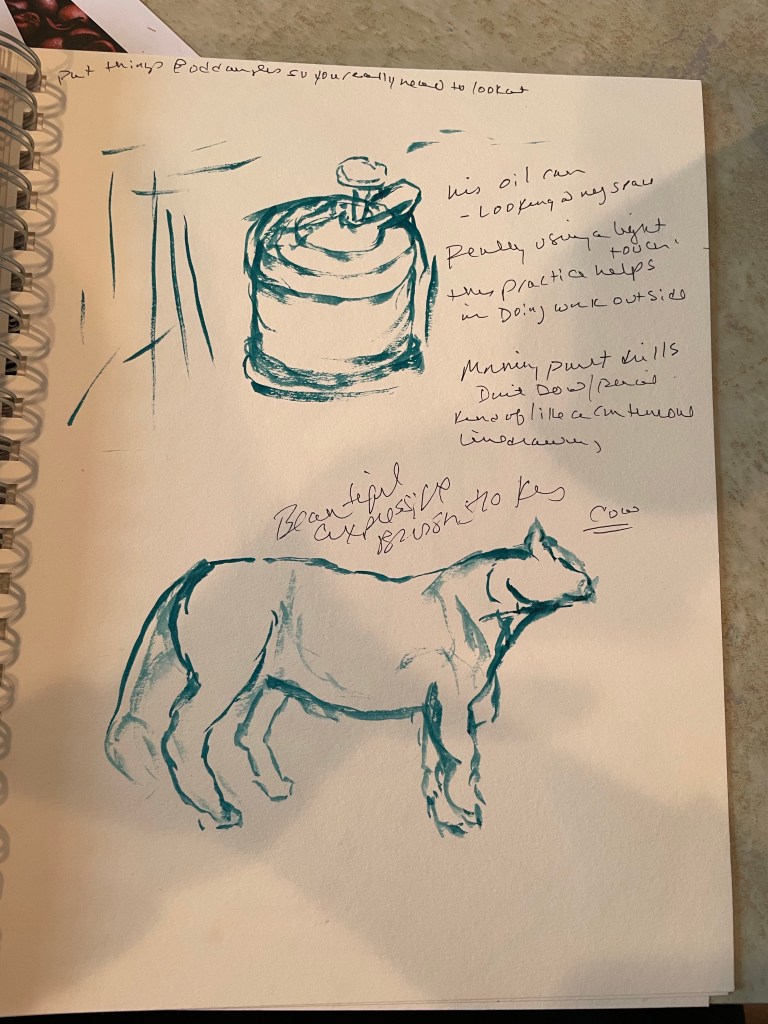 Put things @ odd angles so you really need to look at
his oil can
- Looking @ neg space
Really using a light
touch.
this practice helps
in Doing work outside
Morning paint drills
Don't Dow/pencil
Kind of like a continuous
line drawing
Beautiful
expressive
Brushstrokes
Cow